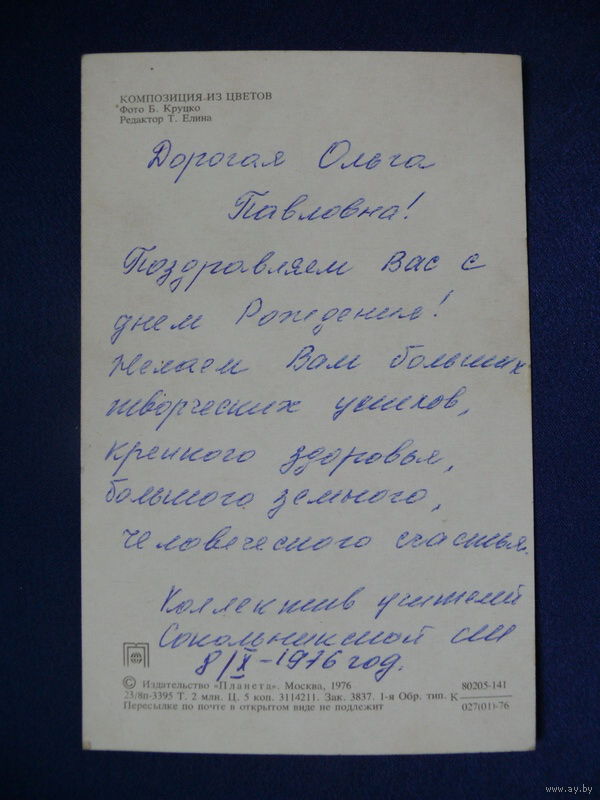 КОМПОЗИЦИЯ ИЗ ЦВЕТОВ
Фото Б. Круцко
Редактор Т. Елина
Дорогая Ольга
Павловна!
Поздравляем Вас с
днем Рождения!
Желаем Вам больших
творческих успехов,
крепкого здоровья,
большого земного,
человеческого счастья.
Коллектив учителей
Сокольникской СШ
8/X-1976 год.
© Издательство «Планета». Москва, 1976
80205-141
23/8п-3395 Т. 2 млн. Ц. 5 коп. 3114211. Зак. 3837. 1-я Обр. тип. К
027(01)-76
Пересылке по почте в открытом виде не подлежит
www.ay.by